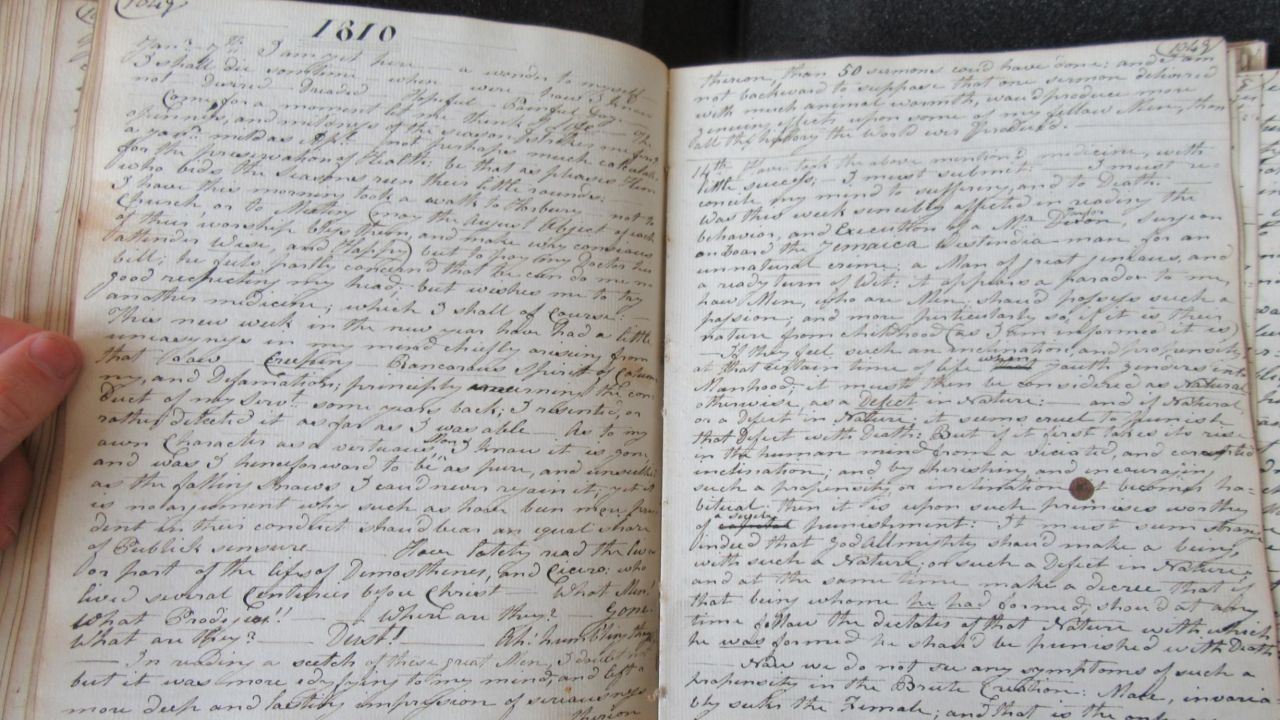 1810
Jan.y 7th I am yet here — a wonder to myself —
I shall die sometime — when — were — how I know
not — Desired — Dreaded — Hopeful — Painful Day —
Come, for a moment let me think of life — The
openness, and mildness of the season, forsakes me
a year mild as April — not perhaps much calculated
for the preservation of Health: be that as pleases Him
who bids the Seasons run their little rounds: —
I have this morning took a walk to Horbury — not to
Church, or to Meeting (may the August Object of each
of their worship bless them, and make every consious
Attender Wise, and Happy) but to pay my Doctor his
bill; he feels partly concerned that he can do me no
good respecting my head; but wishes me to try
another medicine; which I shall of course. —
This new week in the new year have had a little
uneasyness in my mind chiefly arising from
that low — Creeping — Rancorous Spirit of Calum-
ny, and Defamation; principly concerning the con-
duct of my servt some years back; I resented, or
rather detected it as far as I was able — As to my
own Character as a virtuous Man, I know it is gone,
and was I henceforward to be as pure, and unsullied
as the falling Snows I could never regain it; yet it
is no argument why such as have been more pru-
dent in their conduct should bear an equal share
of Publick censure — Have lately read the lives
or part of the lifes of Demosthenes, and Cicero; who
lived several Centuries before Christ — What Men!
What Prodigies!! — Where are they? — Gone.
What are they? — Dust! — Ah! humbling
— In reading a scetch of these great Men, I doubt not
but it was more edyfying to my mind, and left a
more deep and lasting impression of seriousness
thereon
thereon, than 50 sermons could have done: and I am
not backward to suppose that one sermon delivered
with much animal warmth, would produce more
genuine effects upon some of my fellow Men, than
all the history the World ever produced.
14th Have took the above mentioned medicine, with
little success, I must submit — I must re-
concile my mind to suffering, and to Death. —
Was this week sencibly affected in reading the
behavior, and Execution of a Mr. Taylor Surgeon
on board the Jamaica Westindia-man for an
unnatural crime; a Man of great genious, and
a ready turn of Wit: it appears a paradox to me,
how Men, who are Men, should possess such a
passion; and more particularly so, if it is their
nature from childhood (as I am informed it is)
— If they feel such an inclination, and propensity,
at that certain time of life when youth genders into
Manhood; it must then be considered as Natural
otherwise, as a Defect in Nature: — and if Natural,
or a Defect in Nature; it seems cruel to punish
that Defect with Death: But if it first takes its rise
in the human mind from a viciated, and corrupted
inclination; and by cherishing, and encouraging
such a propensity, or inclination it becomes ha-
bitual, then it is upon such premises worthy
of severe punishment: It must seem strange
indeed that God Allmighty should make a being,
with such a Nature; or such a Defect in Nature;
and at the same time make a decree that if
that being whome he had formed, should at any
time follow the dictates of that Nature with which
he was formed he should be punished with Death
— Now we do not see any symptoms of such a
propensity in the Brute Creation: Male, invaria-
bly seeks the Female; and that is the only